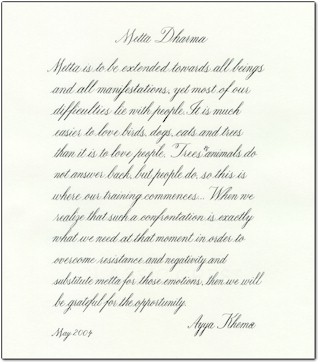 Metta Dharma
Metta is to be extended towards all beings
and all manifestations, yet most of our
difficulties lie with people. It is much
easier to love birds, dogs, cats and trees
than it is to love people. Trees & animals do
not answer back, but people do, so this is
where our training commences... When we
realize that such a confrontation is exactly
what we need at that moment in order to
overcome resistance and negativity and
substitute metta for those emotions, then we will
be grateful for the opportunity.
Ayya Khema
May 2004